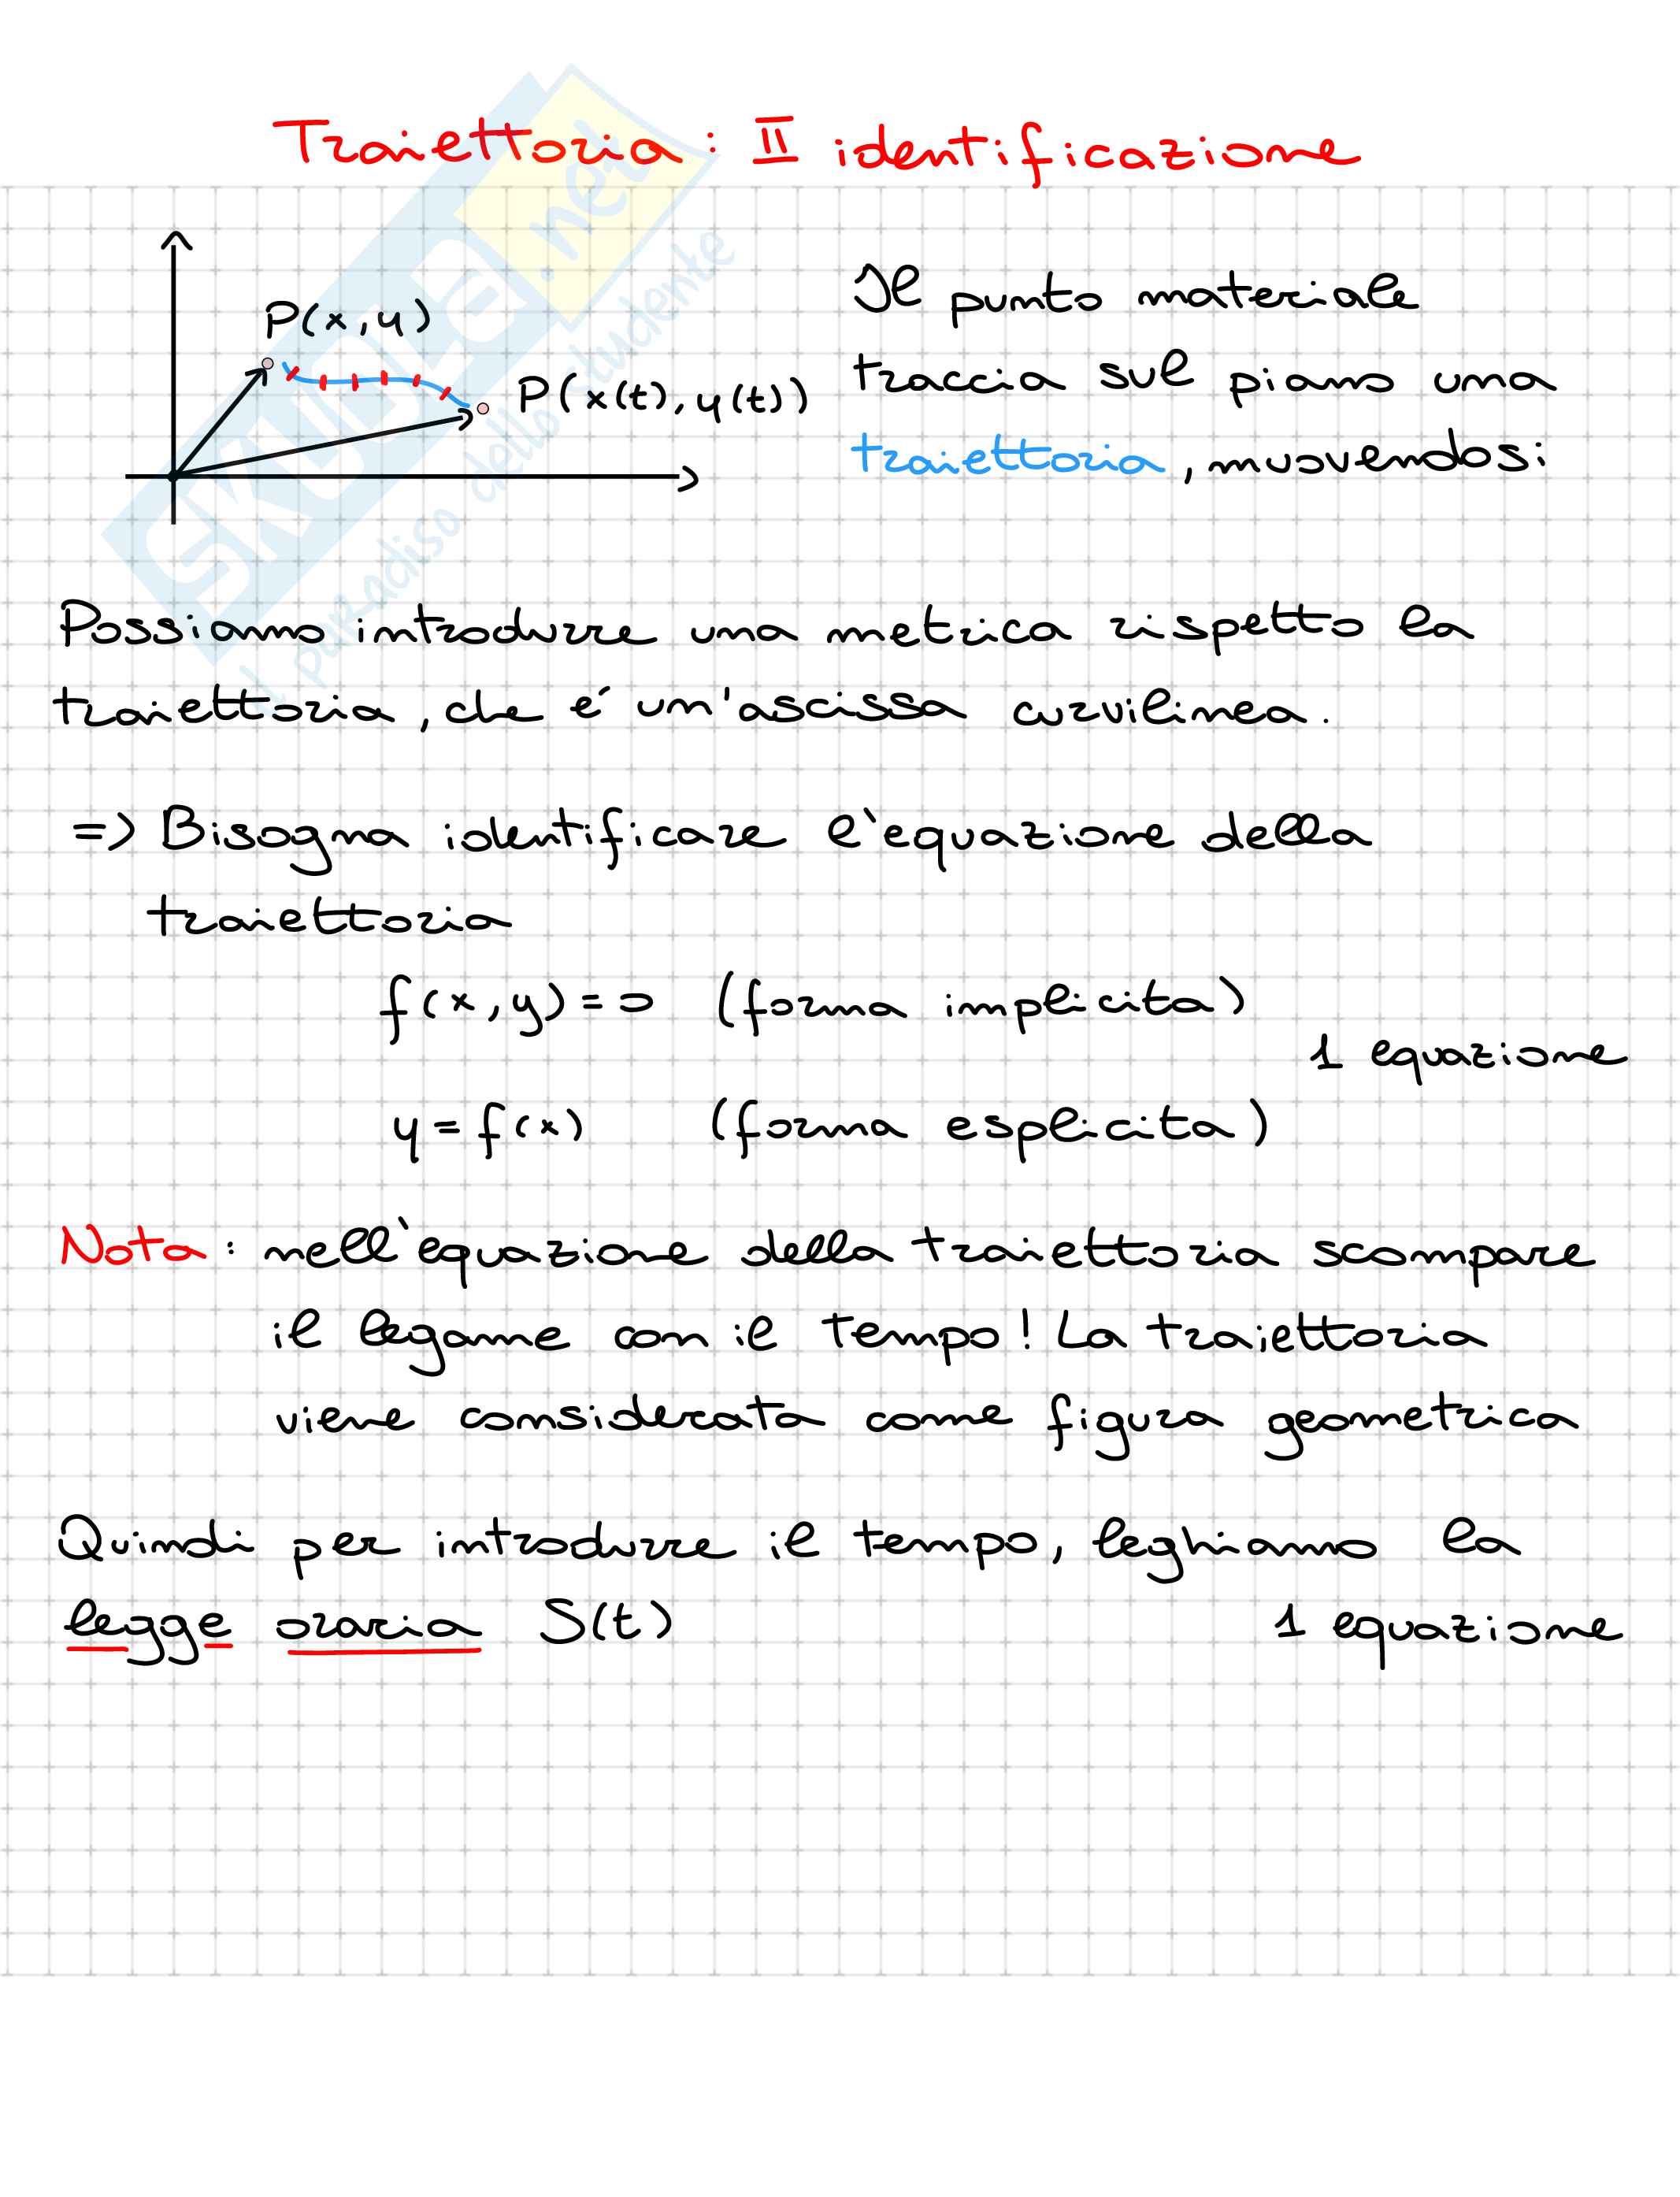 Traiettoria: II identificazione
P(x,y)
P(x(t),y(t))
Il punto materiale
traccia sul piano una
traiettoria, muovendosi
Possiamo introdurre una metrica rispetto la
traiettoria, che é un'ascissa curvilinea.
=> Bisogna identificare l'equazione della
traiettoria
f(x,y)=0 (forma implicita)
1 equazione
y=f(x) (forma esplicita)
Nota: nell'equazione della traiettoria scompare
il legame con il tempo! La traiettoria
viene considerata come figura geometrica
Quindi per introdurre il tempo, leghiamo la
legge oraria S(t) 1 equazione
SKUOLa.net
il paradiso dello studente